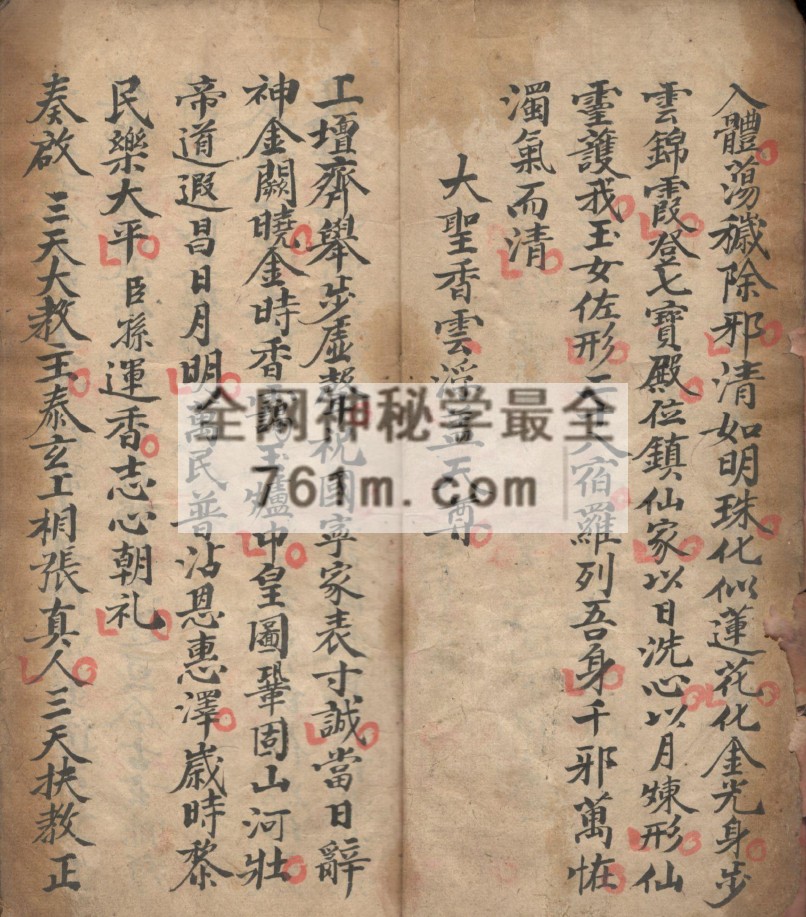 入體蕩穢除邪清如明珠化似蓮花化金光身步
雲錦霞登七寶殿位鎮仙家以日洗心以月煉形仙
靈護我玉女佐形二十八宿羅列吾身千邪萬怪
濁氣而清
大聖香雲浮盖天尊
工壇齊舉步虛聲祝國寧家表寸誠當日辭
神金闕曉金時香靄玉爐中皇圖鞏固山河壯
帝道遐昌日月明萬民普沾恩惠澤歲時黎
民樂大平臣孫運香志心朝礼
奏啟三天大教主泰玄工相張真人三天扶教正
全网神秘学最全
761m.com